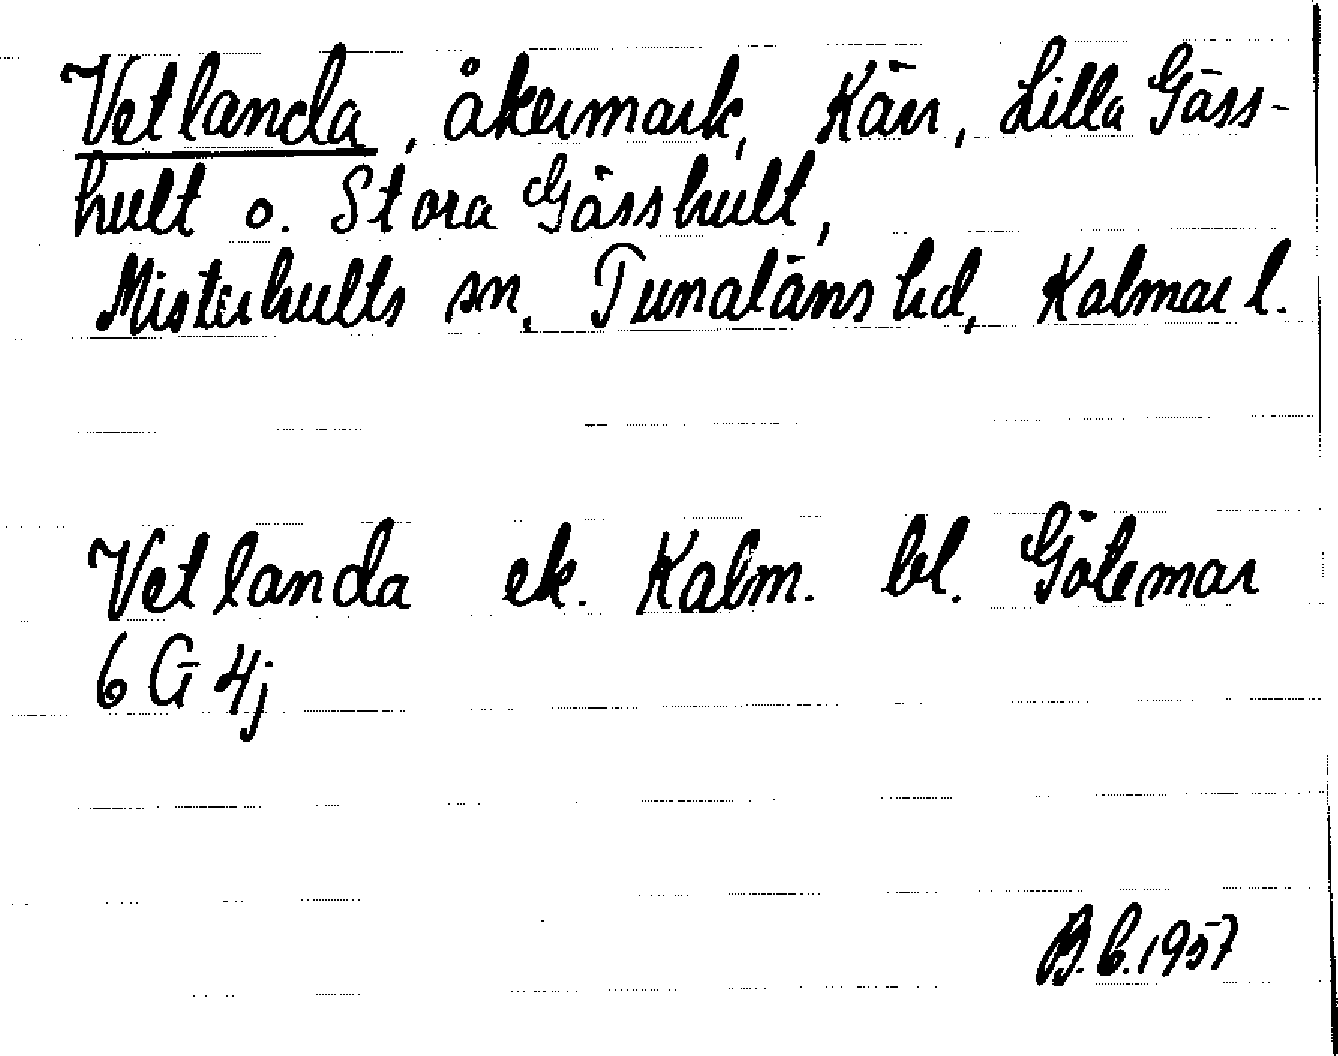 Vetlanda, åkermark, Kärr, Lilla Gäss-
hult o. Stora Gässhult,
Misterhults sn, Tunaläns hd, Kalmar l.
Vetlanda ek. Kalm. bl. Götemar
6 G 4j
B.C. 1957